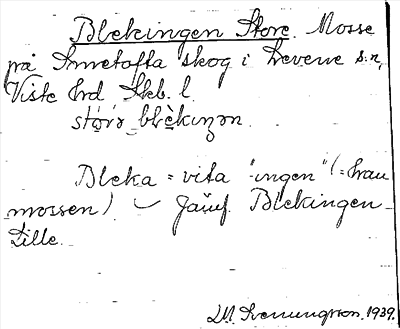 Blekingen Store. Mosse
på Smetofta skog i Levene s:n,
Viste hrd Skb. l.
störə blèkiŋən.
Bleka = vita "ingen" (=
mossen) – Jämf. Blekingen
Lille.
LM Svenungsson. 1939.